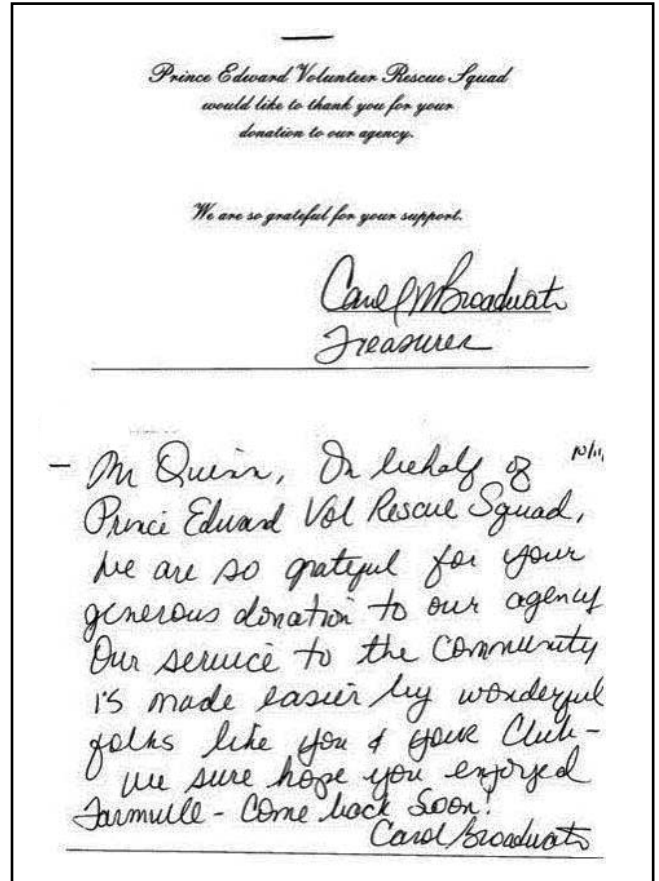 Prince Edward Volunteer Rescue Squad
would like to thank you for your
donation to our agency.
We are so grateful for your support.
Carol M Broadwater
Treasurer
- Mr Quinn, On behalf of
Prince Edward Vol Rescue Squad,
we are so grateful for your
generous donation to our agency
Our service to the community
is made easier by wonderful
folks like you & your Club -
we sure hope you enjoyed
Farmville - Come back soon!
Carol Broadwater